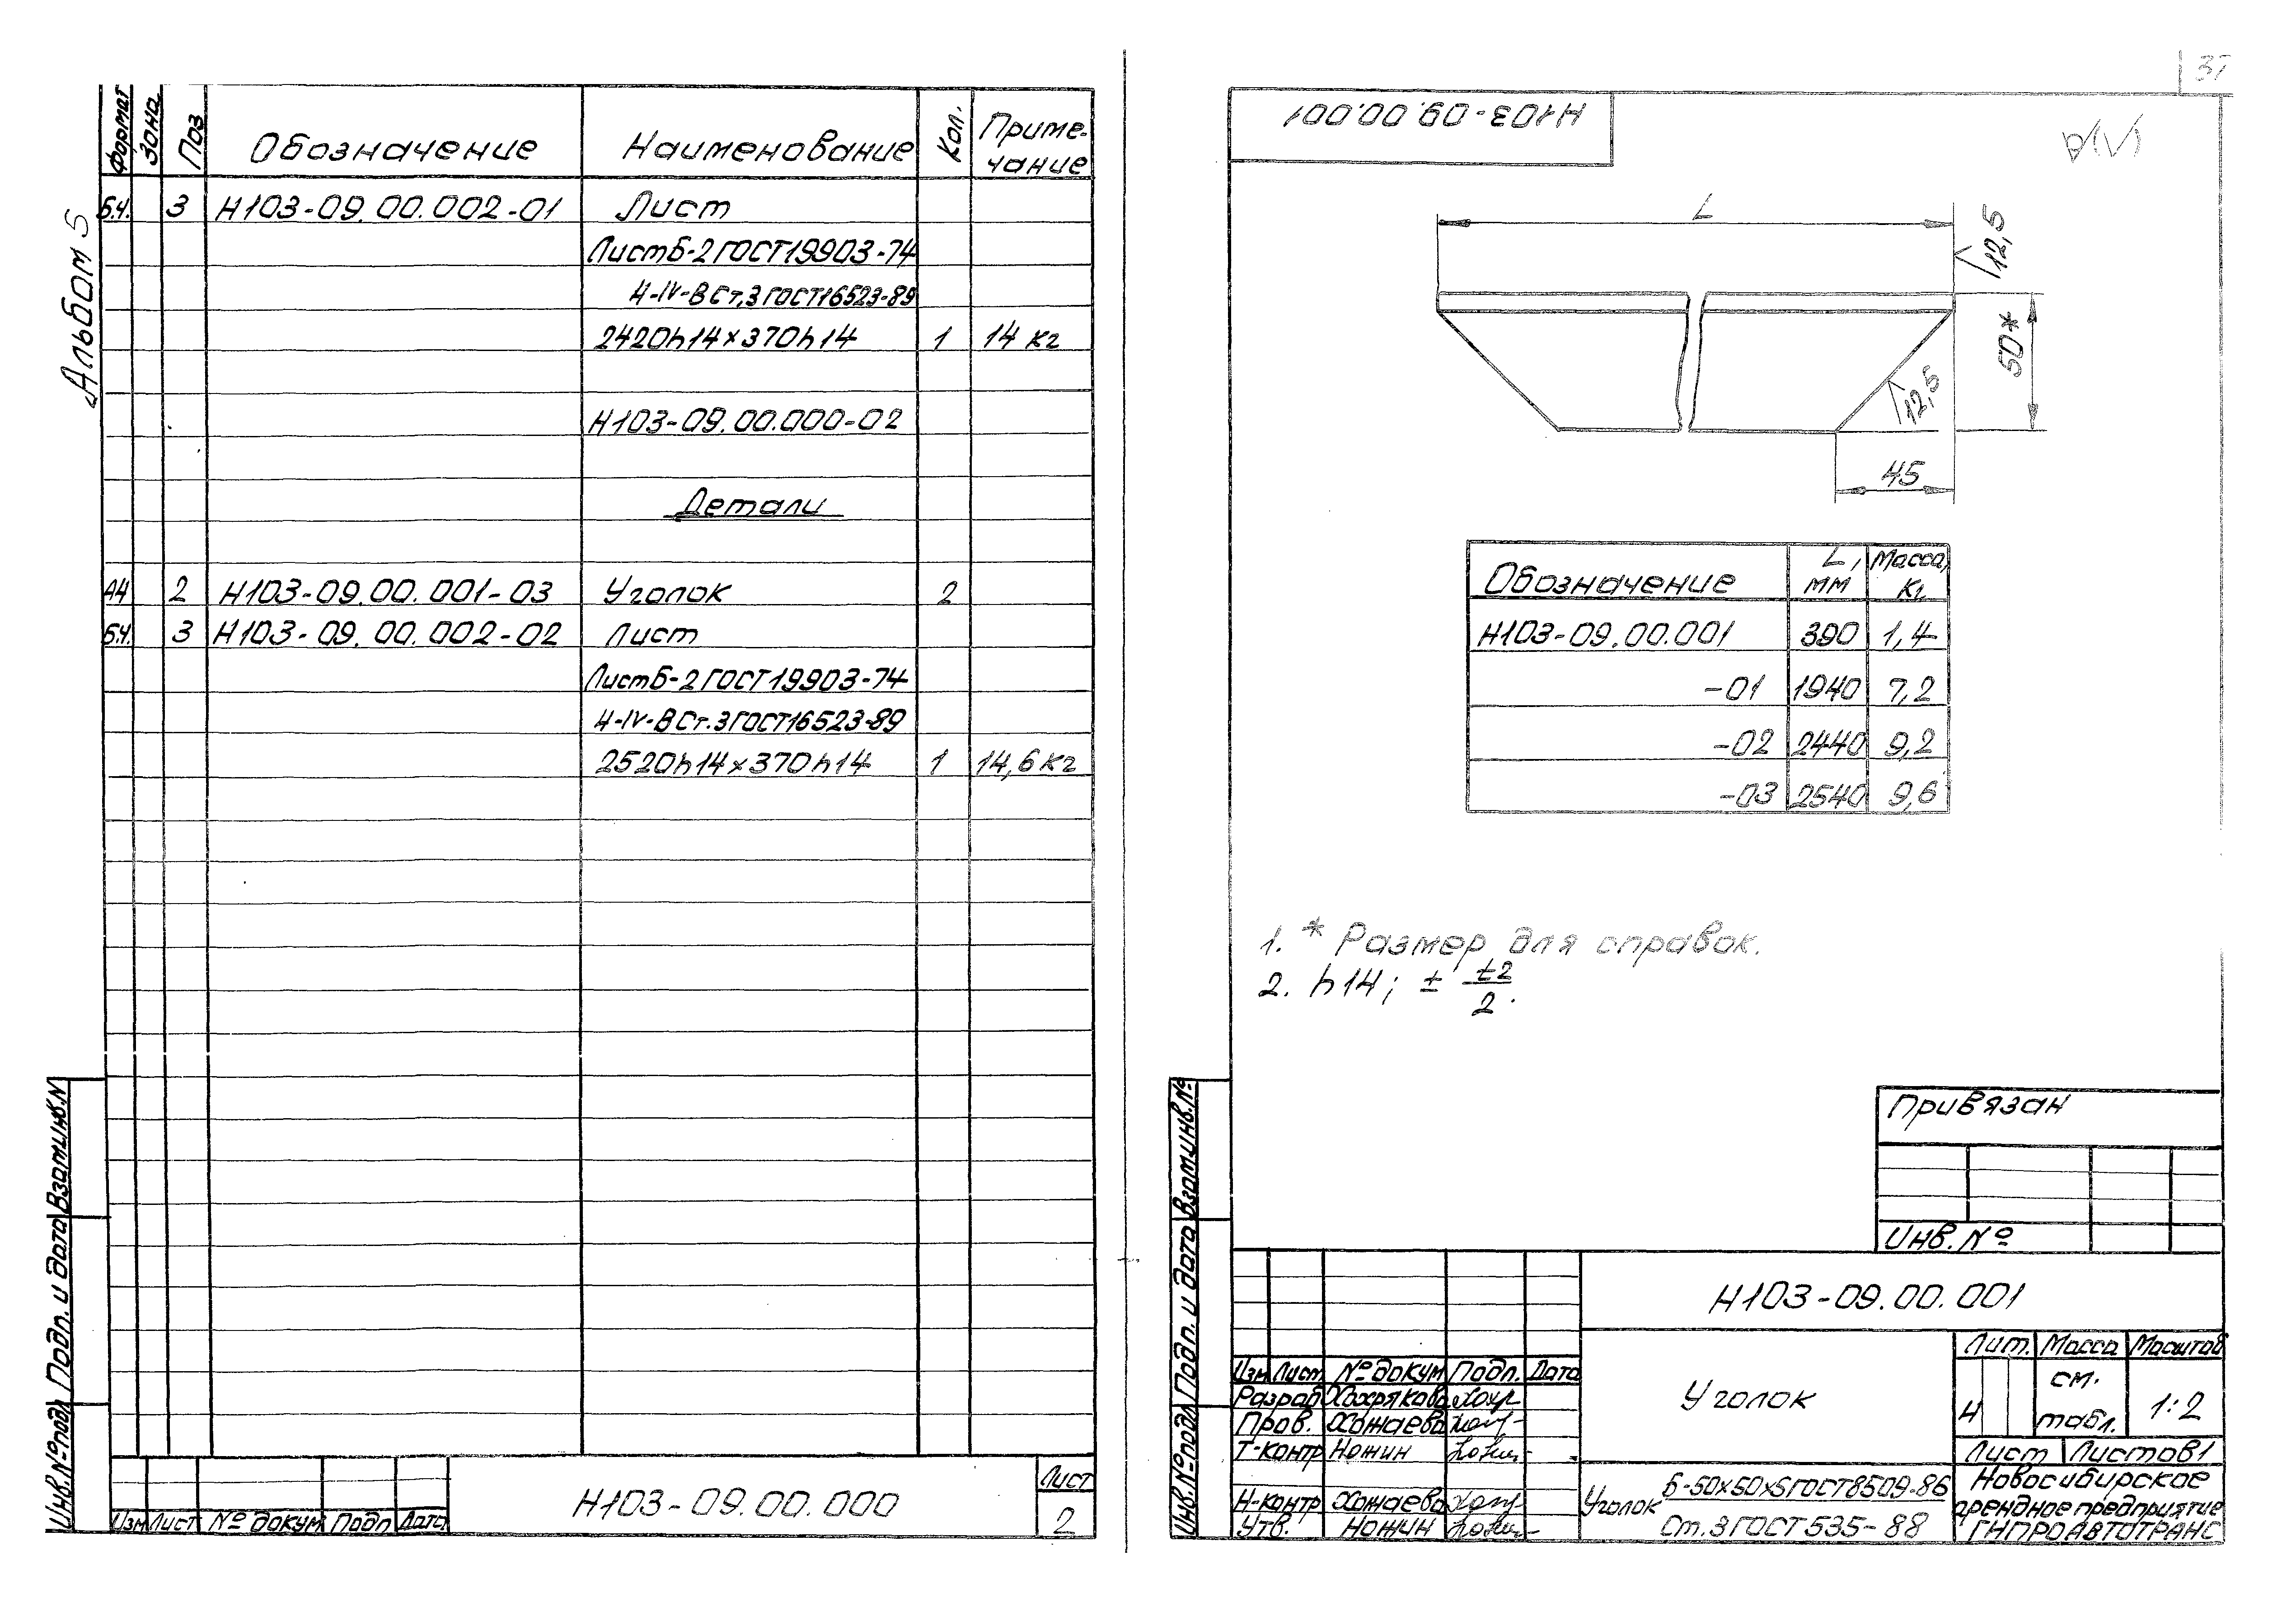 Альбом 5
Формат Зона Поз Обозначение Наименование Кол. Приме-
чание
Б.Ч. 3 Н103-09.00.002-01 Лист
Лист Б-2 ГОСТ 19903-74
4-IV-В Ст.3 ГОСТ 16523-89
2420h14×370h14 1 14 кг
Н103-09.00.000-02
Детали
А4 2 Н103-09.00.001-03 Уголок 2
Б.Ч. 3 Н103-09.00.002-02 Лист
Лист Б-2 ГОСТ 19903-74
4-IV-В Ст.3 ГОСТ 16523-89
2520h14×370h14 1 14,6 кг
Инв.№подл Подп. и дата Взам.инв.N
Изм Лист № докум Подп Дата
Н103-09.00.000
Лист
2
37
Н103-09.00.001
L
12,5
50*
12,5
45
Обозначение L, мм Масса, кг
Н103-09.00.001 390 1,4
-01 1940 7,2
-02 2440 9,2
-03 2540 9,6
1. * Размер для справок.
2. h14; ± t2/2.
Привязан
Инв. №
Инв.№подл Подп. и дата Взам.инв.№
Н103-09.00.001
Изм Лист № докум Подп. Дата
Разраб Хохрякова
Пров. Хожаева
Т-контр Ножин
Н-контр Хожаева
Утв. Ножин
Уголок
Лит. Масса Масштаб
И см. табл. 1:2
Лист Листов 1
Уголок Б-50×50×5 ГОСТ 8509-86
Ст.3 ГОСТ 535-88
Новосибирское
арендное предприятие
ГИПРОАВТОТРАНС